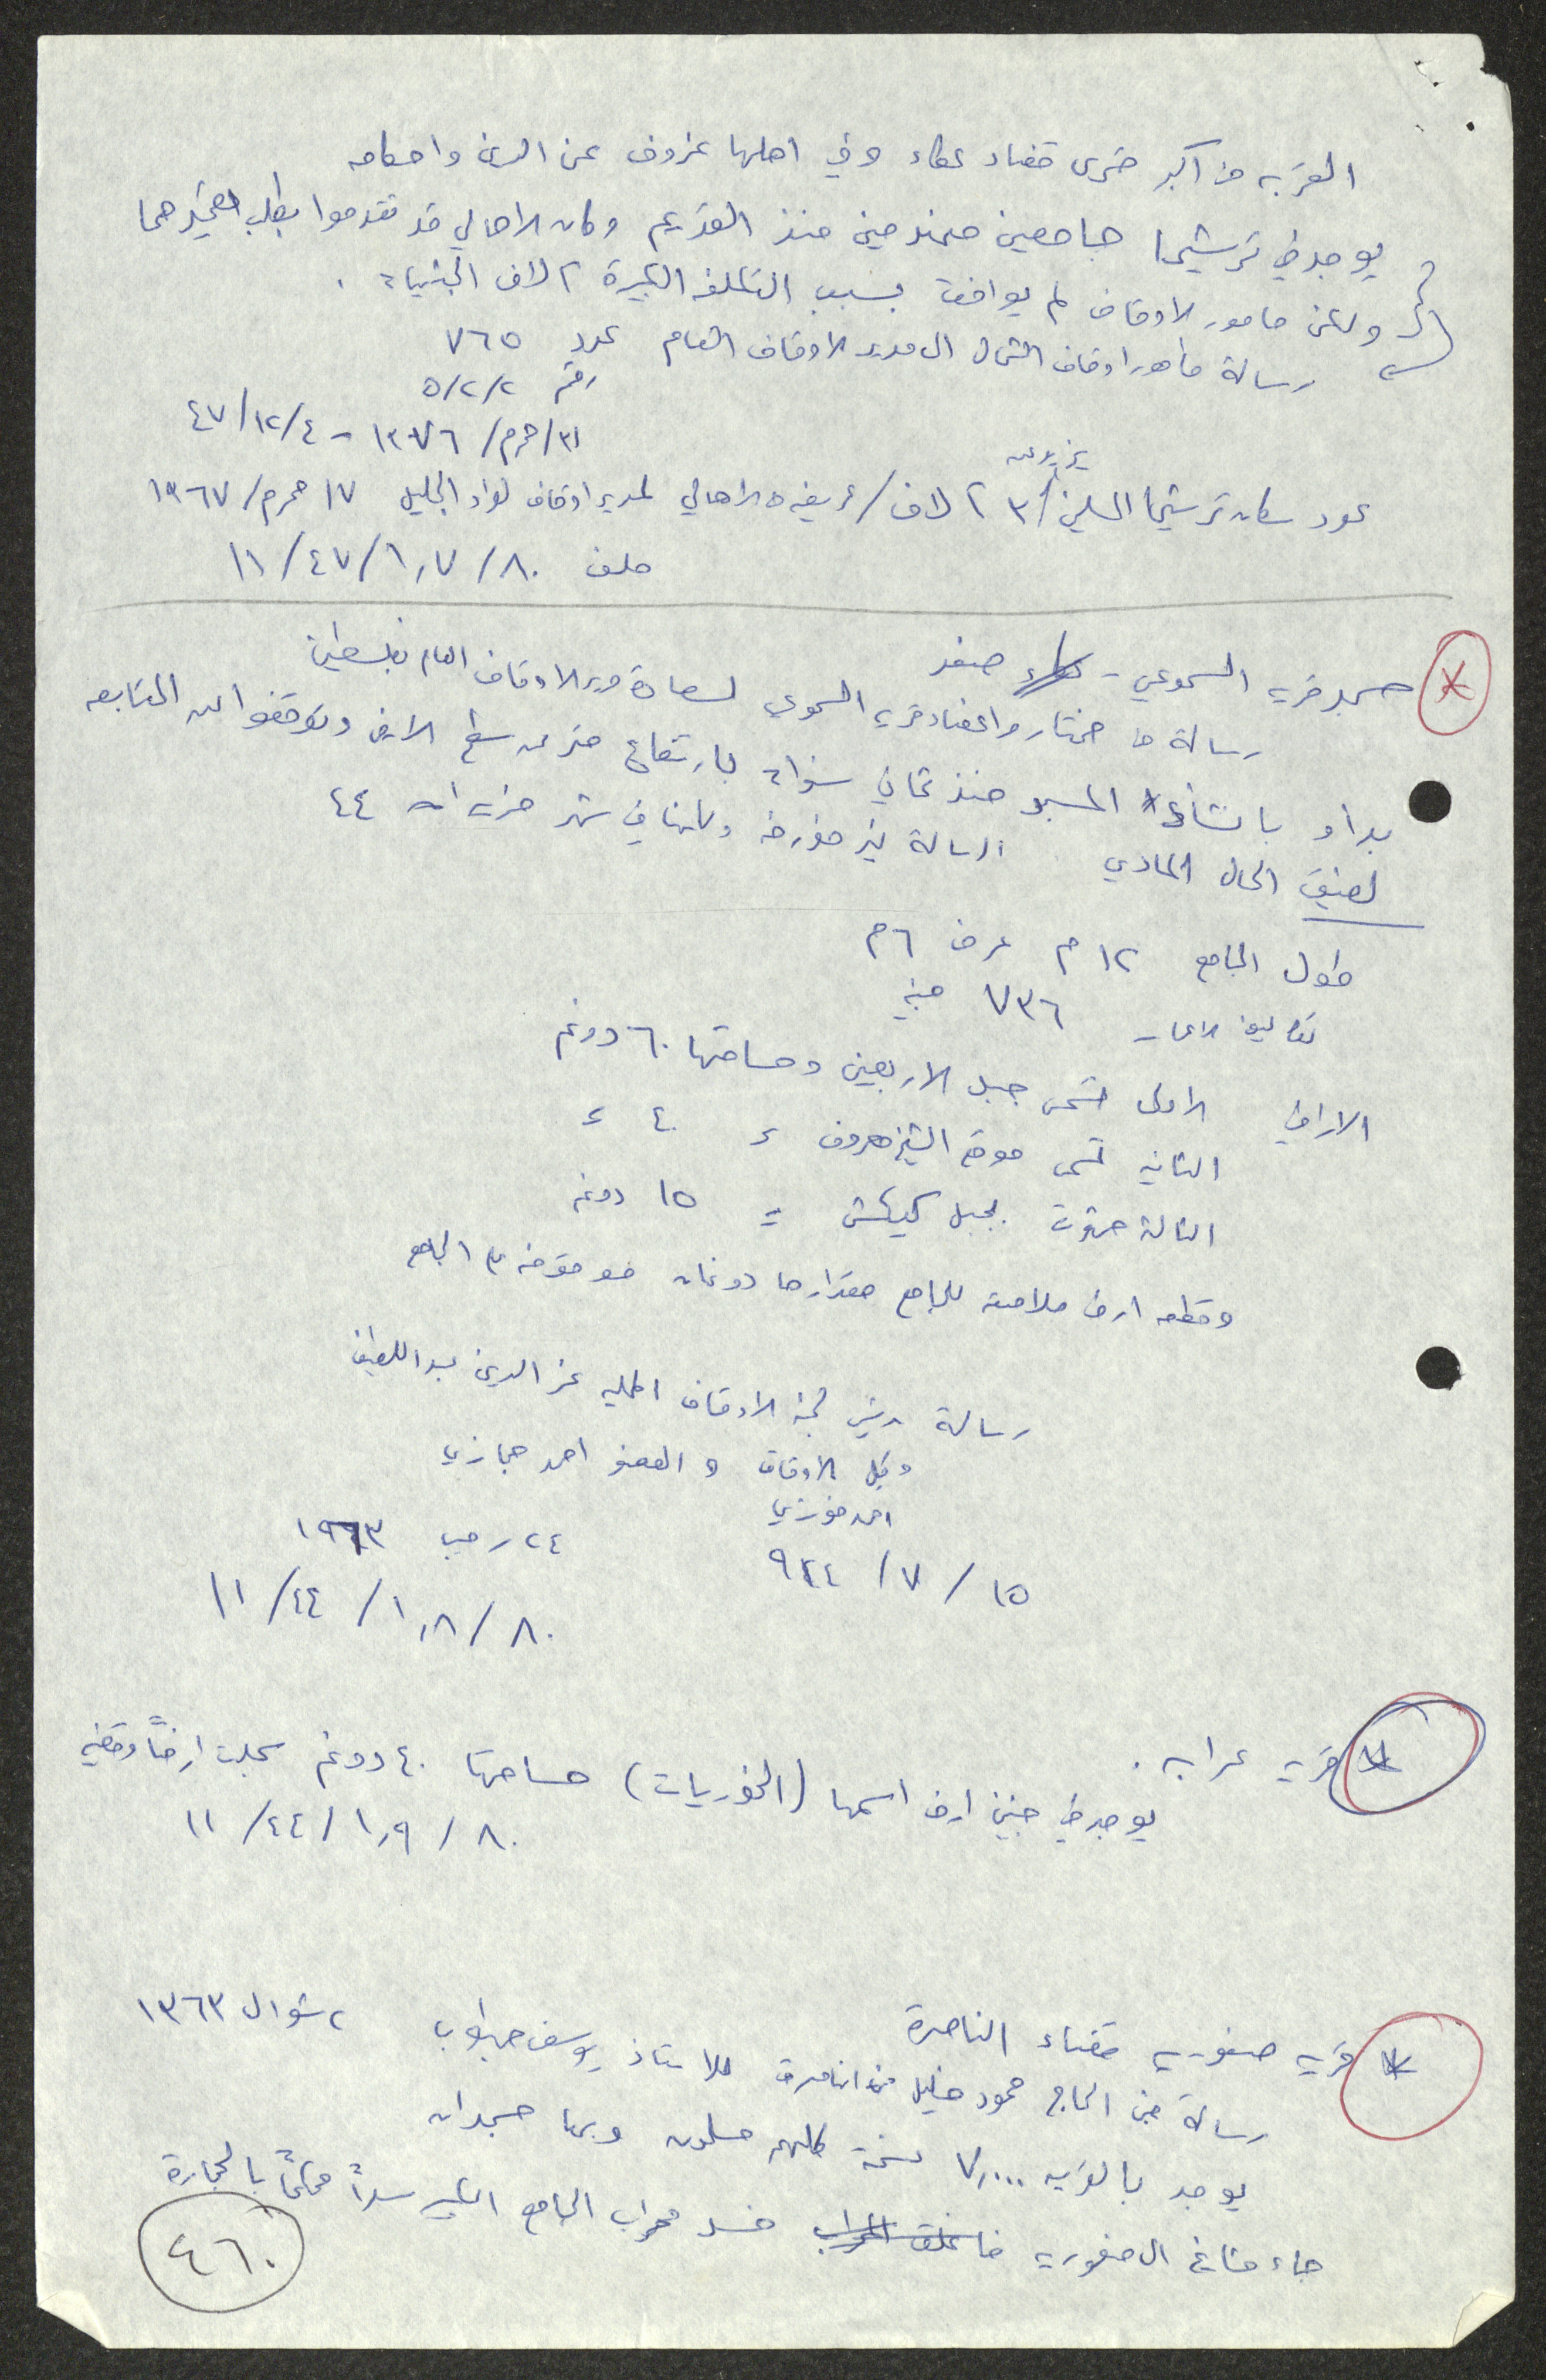 القريه من اكبر قرى قضاء عكاء وفي اهلها عزوف عن الدين واحكامه
يوجد في ترشيحا جامعين منذ القديم وكان الاهالي قد تقدموا بطلب
ولكن مامور الاوقاف لم يوافق بسبب التكلفه الكبيرة ٢ الاف الجنيهات .
رسالة مامور اوقاف الشمال الى مدير الاوقاف العام عدد ٧٦٥
رقم ٥/٢/٢
٢١/محرم/١٣٧٦ - ٤٧/١٢/٤
يزيد عن
عدد سكان ترشيحا المسلمين / ٣ الاف / عريضه الاهالي لمدير اوقاف لواء الجليل ١٧ محرم/١٩٦٧
ملف ٨٠/١,٧/٤٧/١١
مسجد قريه السموعي - عكاء صفد
رسالة من مختار واعضاء قريه السموعي لسعادة مدير الاوقاف العام بفلسطين
بداو بانشاء المسجد منذ ثماني سنوات بارتفاع متر عن سطح الارض وتوقفوا عن المتابعه
لضيق الحال المادي الرسالة غير مؤرخه ولكنها في شهر ٤٤
طول الجامع ١٢ م عرض ٦ م
تكاليف الاعمار ٧٣٦ جنيه
الاراضي الاولى تسمى جبل الاربعين ومساحتها ٦٠ دونم
الثانيه تسمى موقع الشيخ معروف ء ٤٠ ء
الثالثة بجبل = ١٥ دونم
وقطعه ارض ملاصقه للجامع مقدارها دونمان موقوفه على الجامع
رسالة رئيس لجنة الاوقاف المحليه عز الدين عبد اللطيف
وكيل الاوقاف والعضو احمد حجازي
احمد فوزي
٢٤ رجب ١٩٦٣
١٥ / ٧ / ٩٤٤
٨٠ / ١,٨ / ٤٤ / ١١
قريه عرابه .
يوجد في جنين ارض اسمها (الخوريات) مساحتها ٤٠ دونم سجلت ارضاً وقفيه
٨٠ / ١,٩ / ٤٤ / ١١
قريه صفوريه قضاء الناصرة
رسالة من الحاج محمود خليل من الناصرة للاستاذ يوسف ٢ شوال ١٣٦٣
يوجد بالقريه ٧,٠٠٠ نسمة كلهم مسلمون وبها مسجدان
جاء مشايخ ال صفوريه فاغلق المحراب فسد محراب الجامع الكبير سداً محكماً بالحجارة
٤٦٠